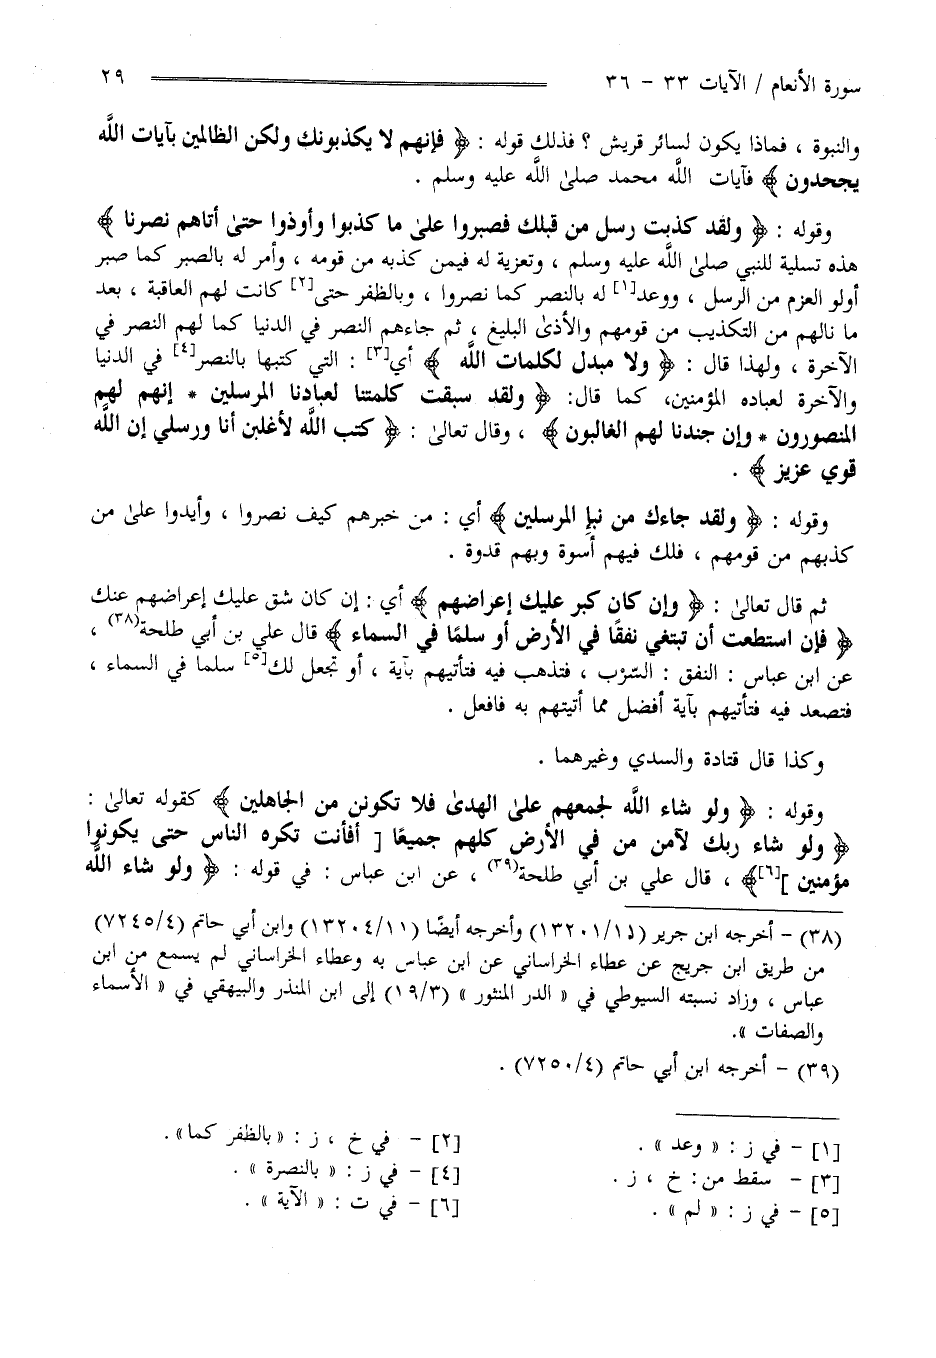 سورة الأنعام / الآيات ٣٣ - ٣٦ ٢٩
والنبوة ، فماذا يكون لسائر قريش ؟ فذلك قوله : ﴿ فإنهم لا يكذبونك ولكن الظالمين بآيات اللَّه
يجحدون ﴾ فآيات اللَّه محمد صلىٰ اللَّه عليه وسلم .
وقوله : ﴿ ولقد كذبت رسل من قبلك فصبروا علىٰ ما كذبوا وأوذوا حتىٰ أتاهم نصرنا ﴾
هذه تسلية للنبي صلىٰ اللَّه عليه وسلم ، وتعزية له فيمن كذبه من قومه ، وأمر له بالصبر كما صبر
أولو العزم من الرسل ، ووعد[١] له بالنصر كما نصروا ، وبالظفر حتى[٢] كانت لهم العاقبة ، بعد
ما نالهم من التكذيب من قومهم والأذىٰ البليغ ، ثم جاءهم النصر في الدنيا كما لهم النصر في
الآخرة ، ولهذا قال : ﴿ ولا مبدل لكلمات اللَّه ﴾ أي[٣] : التي كتبها بالنصر[٤] في الدنيا
والآخرة لعباده المؤمنين، كما قال: ﴿ ولقد سبقت كلمتنا لعبادنا المرسلين * إنهم لهم
المنصورون * وإن جندنا لهم الغالبون ﴾ ، وقال تعالىٰ : ﴿ كتب اللَّه لأغلبن أنا ورسلي إن اللَّه
قوي عزيز ﴾ .
وقوله : ﴿ ولقد جاءك من نبإ المرسلين ﴾ أي : من خبرهم كيف نصروا ، وأيدوا علىٰ من
كذبهم من قومهم ، فلك فيهم أسوة وبهم قدوة .
ثم قال تعالىٰ : ﴿ وإن كان كبر عليك إعراضهم ﴾ أي : إن كان شق عليك إعراضهم عنك
﴿ فإن استطعت أن تبتغي نفقًا في الأرض أو سلمًا في السماء ﴾ قال علي بن أبي طلحة(٣٨) ،
عن ابن عباس : النفق : السّرْب ، فتذهب فيه فتأتيهم بآية ، أو تجعل لك[٥] سلما في السماء ،
فتصعد فيه فتأتيهم بآية أفضل مما أتيتهم به فافعل .
وكذا قال قتادة والسدي وغيرهما .
وقوله : ﴿ ولو شاء اللَّه لجمعهم علىٰ الهدىٰ فلا تكونن من الجاهلين ﴾ كقوله تعالىٰ :
﴿ ولو شاء ربك لآمن من في الأرض كلهم جميعًا [ أفأنت تكره الناس حتى يكونوا
مؤمنين ][٦]﴾ ، قال علي بن أبي طلحة(٣٩) ، عن ابن عباس : في قوله : ﴿ ولو شاء اللَّه
(٣٨) - أخرجه ابن جرير (١٣٢٠١/١١) وأخرجه أيضًا (١٣٢٠٤/١١) وابن أبي حاتم (٧٢٤٥/٤)
من طريق ابن جريج عن عطاء الخراساني عن ابن عباس به وعطاء الخراساني لم يسمع من ابن
عباس ، وزاد نسبته السيوطي في « الدر المنثور » (١٩/٣) إلى ابن المنذر والبيهقي في « الأسماء
والصفات ».
(٣٩) - أخرجه ابن أبي حاتم (٧٢٥٠/٤) .
[١] - في ز : « وعد » .
[٢] - في خ ، ز : «بالظفر كما» .
[٣] - سقط من: خ ، ز .
[٤] - في ز : « بالنصرة » .
[٥] - في ز : « لم » .
[٦] - في ت : « الآية » .